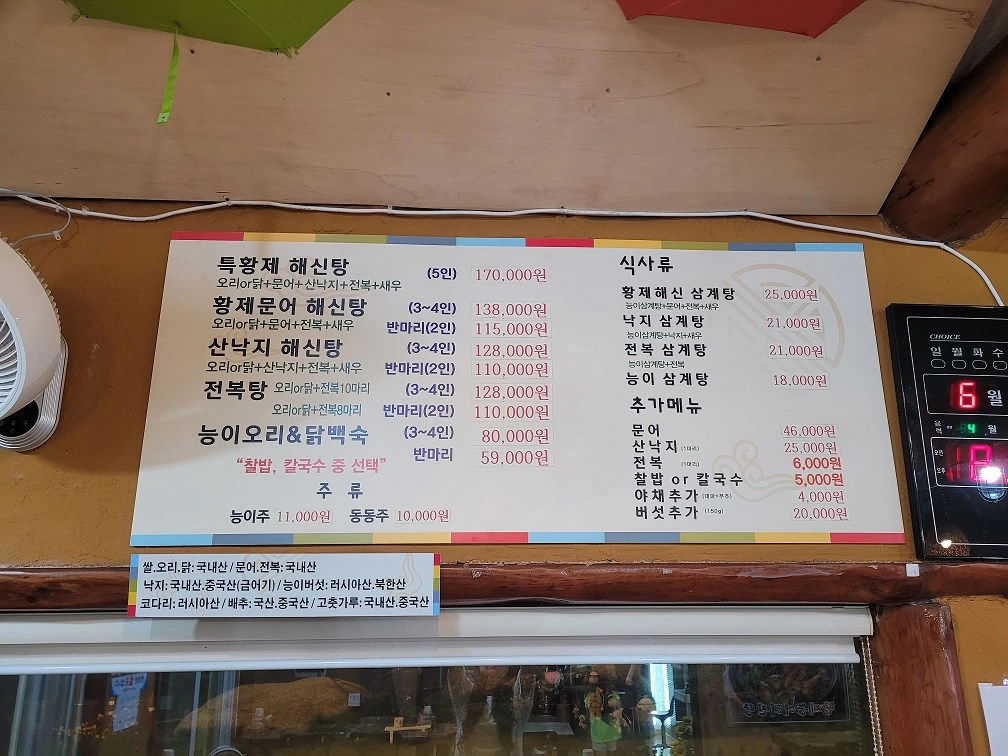 특황제 해신탕 (5인) 170,000원
오리or닭+문어+산낙지+전복+새우
황제문어 해신탕 (3~4인) 138,000원
오리or닭+문어+전복+새우 반마리(2인) 115,000원
산낙지 해신탕 (3~4인) 128,000원
오리or닭+산낙지+전복+새우 반마리(2인) 110,000원
전복탕 오리or닭+전복10마리 (3~4인) 128,000원
오리or닭+전복8마리 반마리(2인) 110,000원
능이오리&닭백숙 (3~4인) 80,000원
반마리 59,000원
"찰밥, 칼국수 중 선택"
주 류
능이주 11,000원 동동주 10,000원
식사류
황제해신 삼계탕 25,000원
능이삼계탕+문어+전복+새우
낙지 삼계탕 21,000원
능이삼계탕+낙지+새우
전복 삼계탕 21,000원
능이삼계탕+전복
능이 삼계탕 18,000원
추가메뉴
문어 46,000원
산낙지 (1마리) 25,000원
전복 (1마리) 6,000원
찰밥 or 칼국수 5,000원
야채추가 (대파+부추) 4,000원
버섯추가 (150g) 20,000원
쌀.오리.닭: 국내산 / 문어.전복: 국내산
낙지: 국내산.중국산(금어기) / 능이버섯: 러시아산.북한산
코다리: 러시아산 / 배추: 국산.중국산 / 고춧가루: 국내산.중국산
CHOICE
일 월 화 수
6 월
음력 4 월
오전
오후